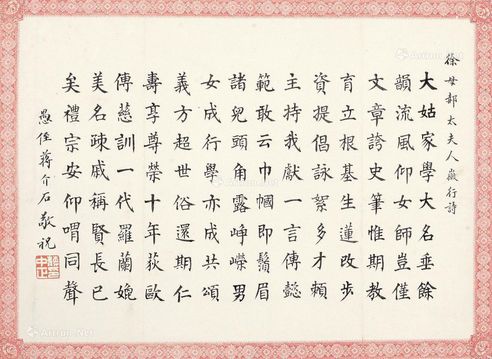 徐母郭太夫人懿行詩
大姑家學大名垂餘
韻流風仰女師豈僅
文章誇史筆惟期教
育立根基生蓮改步
資提倡詠絮多才頼
主持我獻一言傳懿
範敢云巾幗即鬚眉
諸兒頭角露崢嶸男
女成行學亦成共頌
義方超世俗還期仁
壽享尊榮十年荻歐
傳慈訓一代羅蘭媲
美名疎戚稱賢長已
矣禮宗安仰喟同聲
愚侄蔣介石敬祝